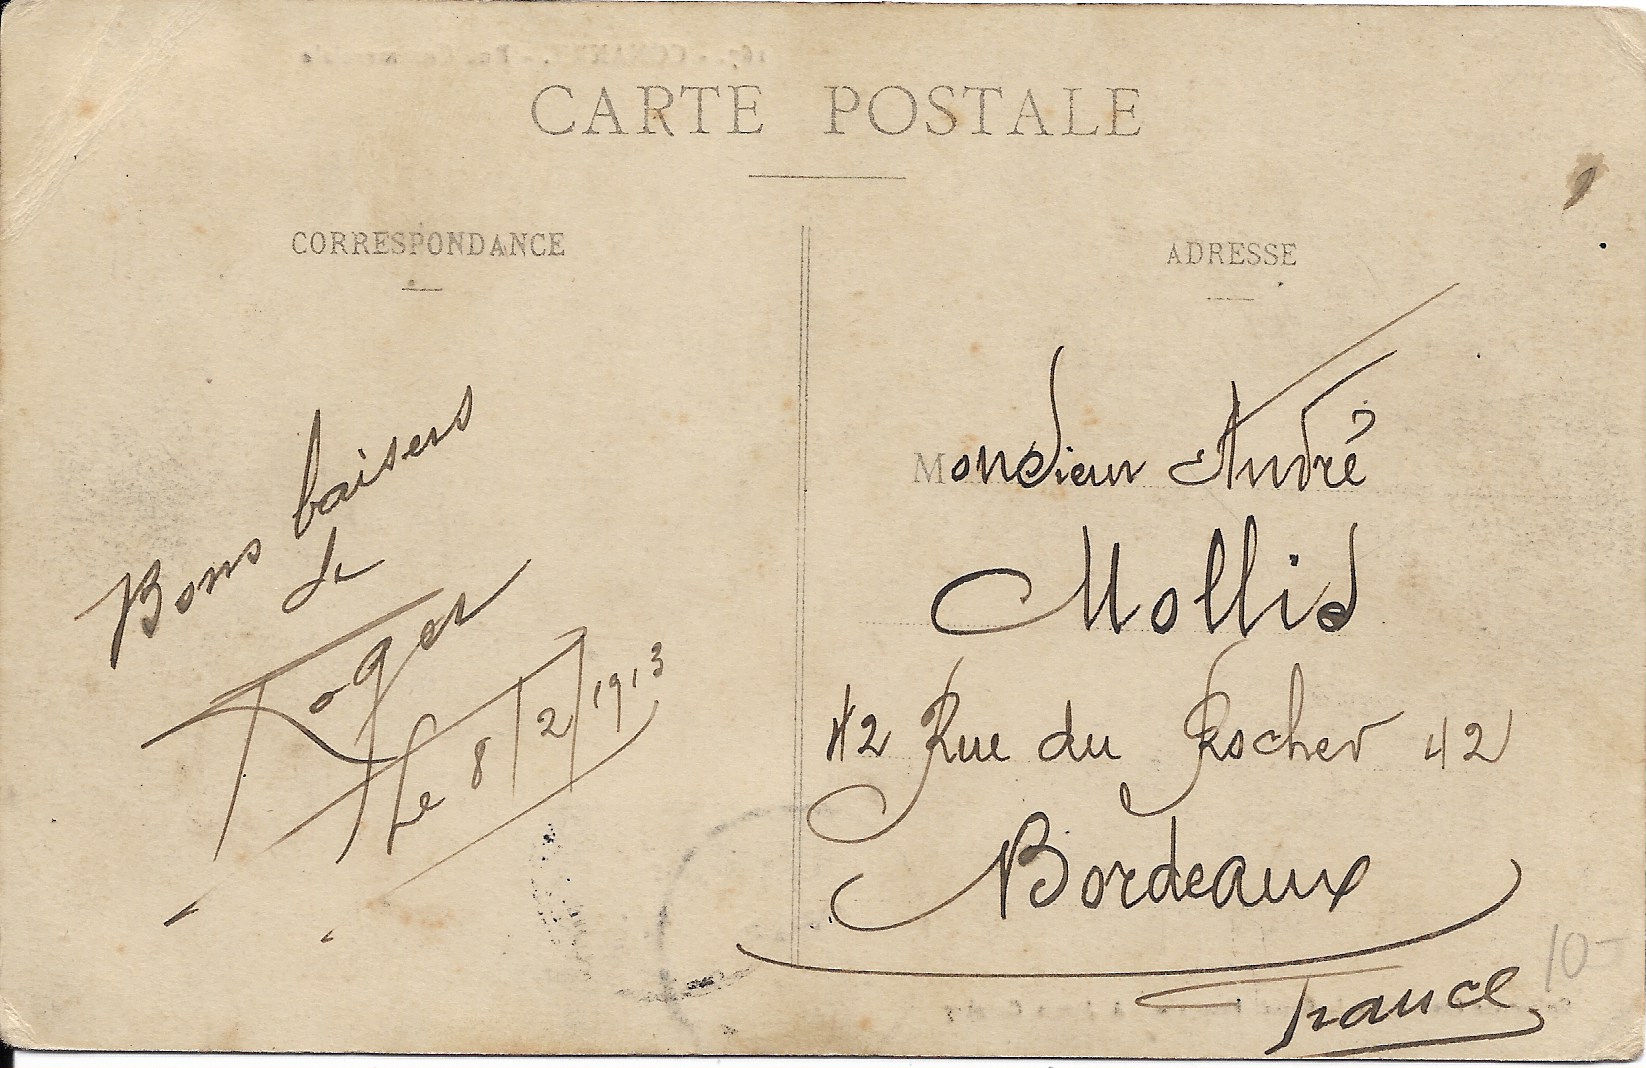 CARTE POSTALE
CORRESPONDANCE
Bons baisers
de
Roger
Le 8/2/1913
ADRESSE
Monsieur André
Mollié
42 Rue du Rocher 42
Bordeaux
France
10-